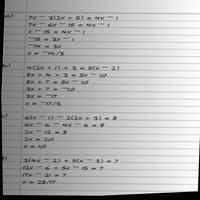 a) 7x - 3(2x + 5) = 4x - 1
7x - 6x - 15 = 4x - 1
x - 15 = 4x - 1
-15 = 3x - 1
-14 = 3x
x = -14/3
b) 4(2x + 1) + 3 = 5(x - 2)
8x + 4 + 3 = 5x - 10
8x + 7 = 5x - 10
3x + 7 = -10
3x = -17
x = -17/3
c) 6(x - 1) - 2(2x + 3) = 8
6x - 6 - 4x - 6 = 8
2x - 12 = 8
2x = 20
x = 10
d) 3(4x - 2) + 5(x - 3) = 7
12x - 6 + 5x - 15 = 7
17x - 21 = 7
x = 28/17